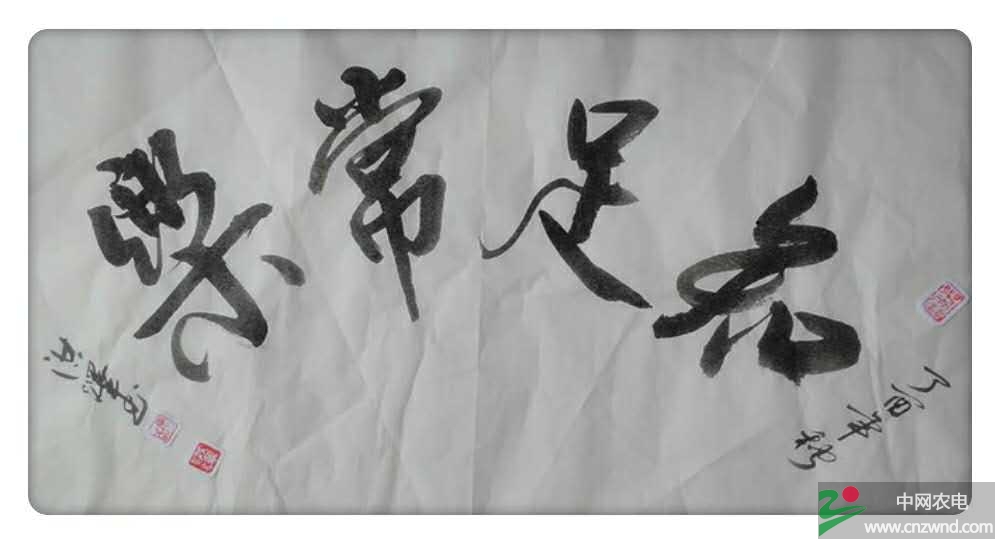 知足常樂
丁酉年秋
中网农电
www.cnzwnd.com